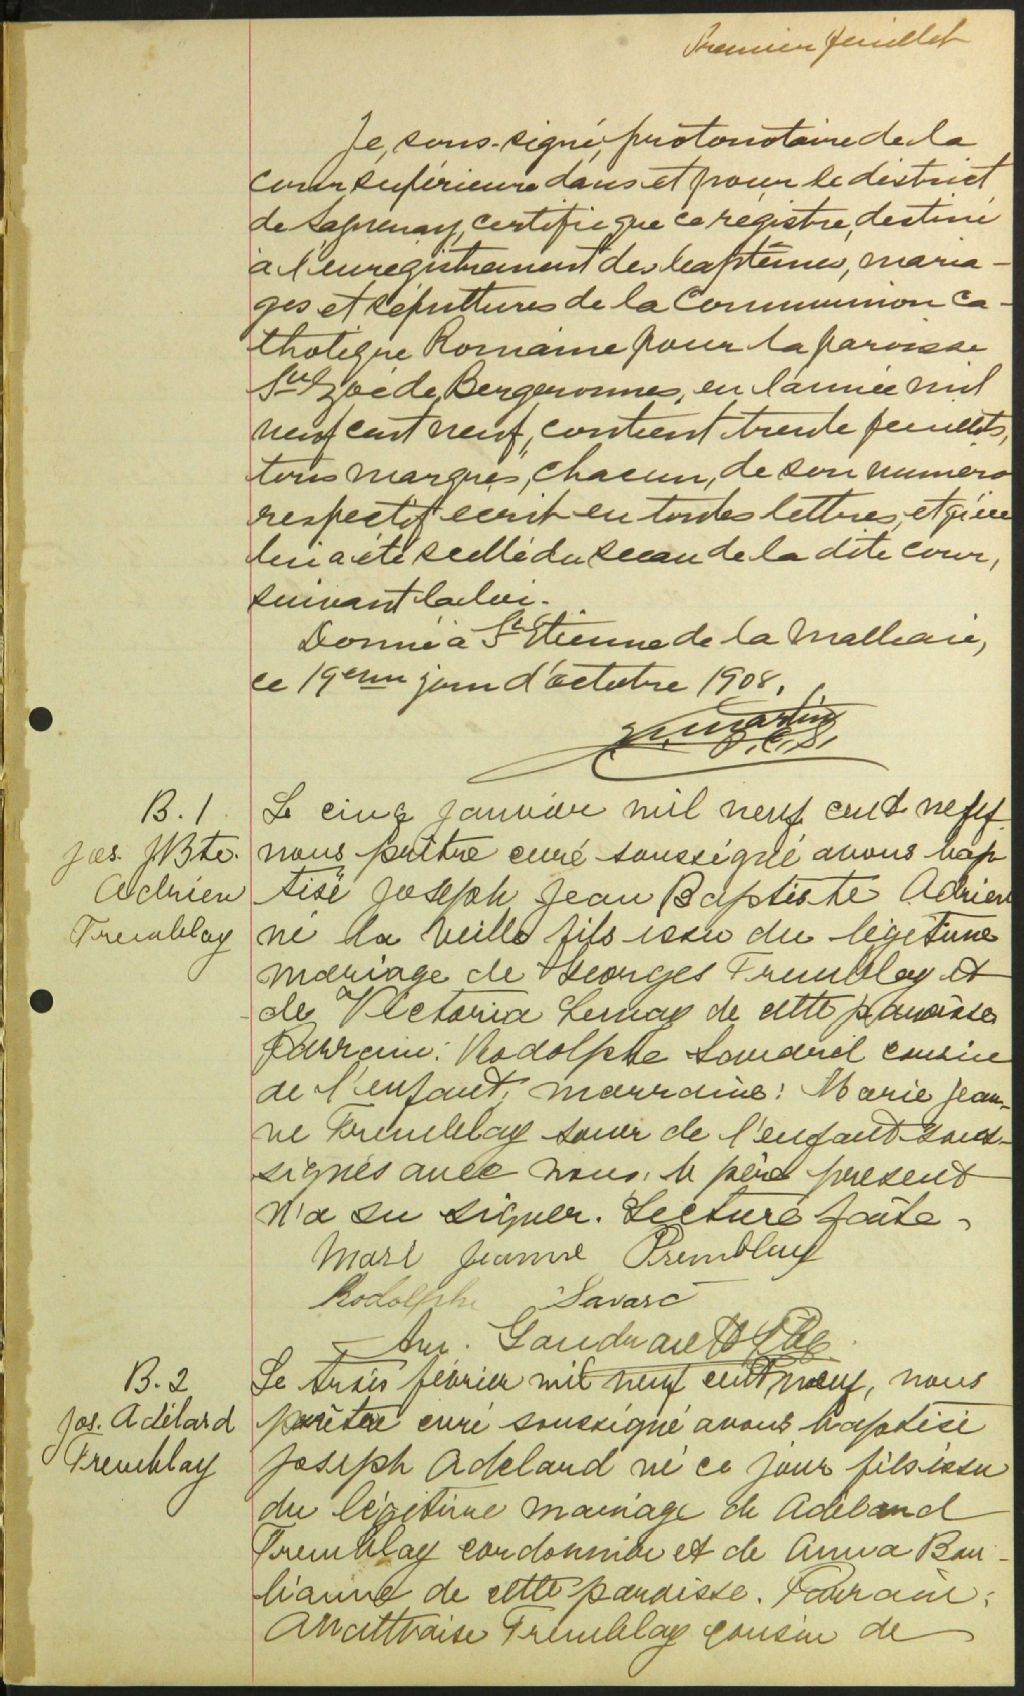 Premier feuillet
Je, sous-signé, protonotaire de la
cour supérieure dans et pour le district
de Saguenay, certifie que ce régistre, destiné
à l'enregistrement des baptêmes, maria-
ges et sépultures de la Communion Ca-
tholique Romaine pour la paroisse
Ste Zoé de Bergeronnes, en l'année mil
neuf cent neuf, contient trente feuillets,
tous marqués, chacun, de son numéro
respectif écrit en toutes lettres, et qu'il
lui a été scellé du sceau de la dite cour,
suivant la loi.
Donné à St Etienne de la Malbaie,
ce 19eme jour d'octobre 1908.
Martin
P.C.S.
B. 1
Jos. J Bte.
Adrien
Tremblay
Le cinq janvier mil neuf cent neuf
nous prêtre curé soussigné avons bap
tisé Joseph Jean Baptiste Adrien
né la veille fils issu du légitime
mariage de Georges Tremblay et
de Victoria Lemay de cette paroisse
Parrain: Rodolphe Savard cousin
de l'enfant; marraine: Marie Jean-
ne Tremblay soeur de l'enfant sous-
signés avec nous, le père présent
n'a su signer. Lecture faite.
Mari Jeanne Tremblay
Rodolphe Savard
Gaudreault Ptre
B. 2
Jos. Adélard
Tremblay
Le trois février mil neuf cent neuf, nous
prêtre curé soussigné avons baptisé
Joseph Adelard né ce jour fils issu
du légitime mariage de Adélard
Tremblay cordonnier et de Anna Bou-
lianne de cette paroisse. Parrain:
Tremblay cousin de